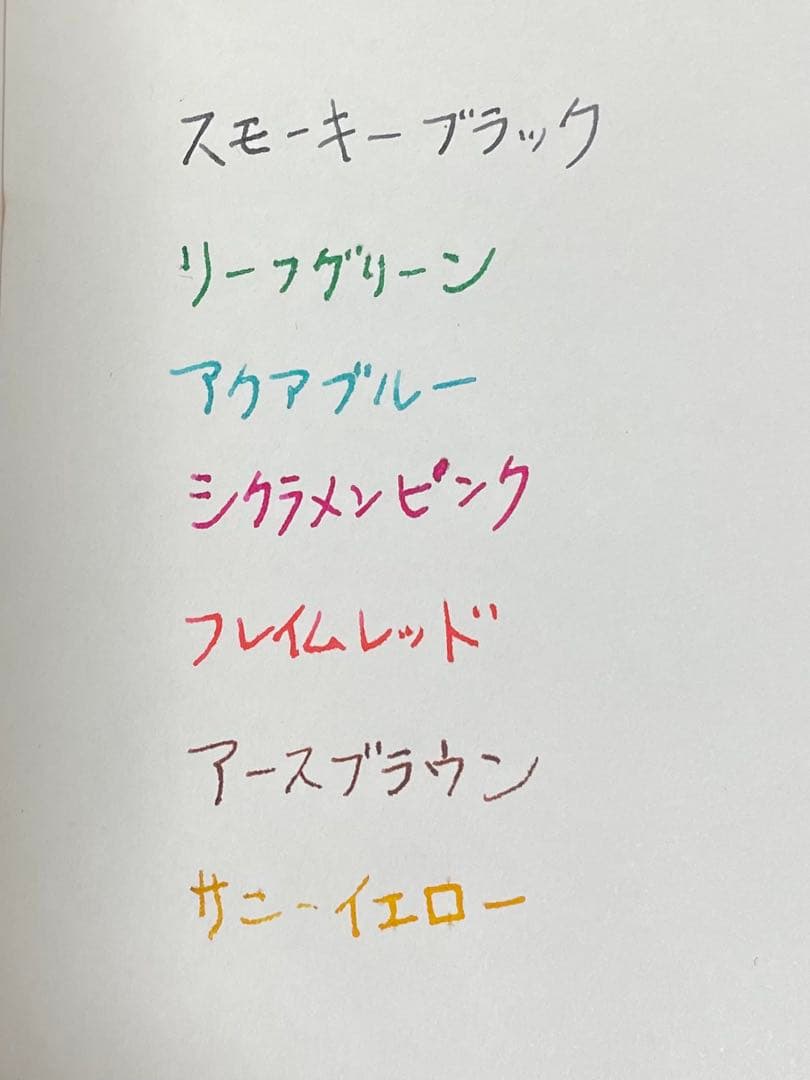 スモーキーブラック
リーフグリーン
アクアブルー
シクラメンピンク
フレイムレッド
アースブラウン
サニーイエロー